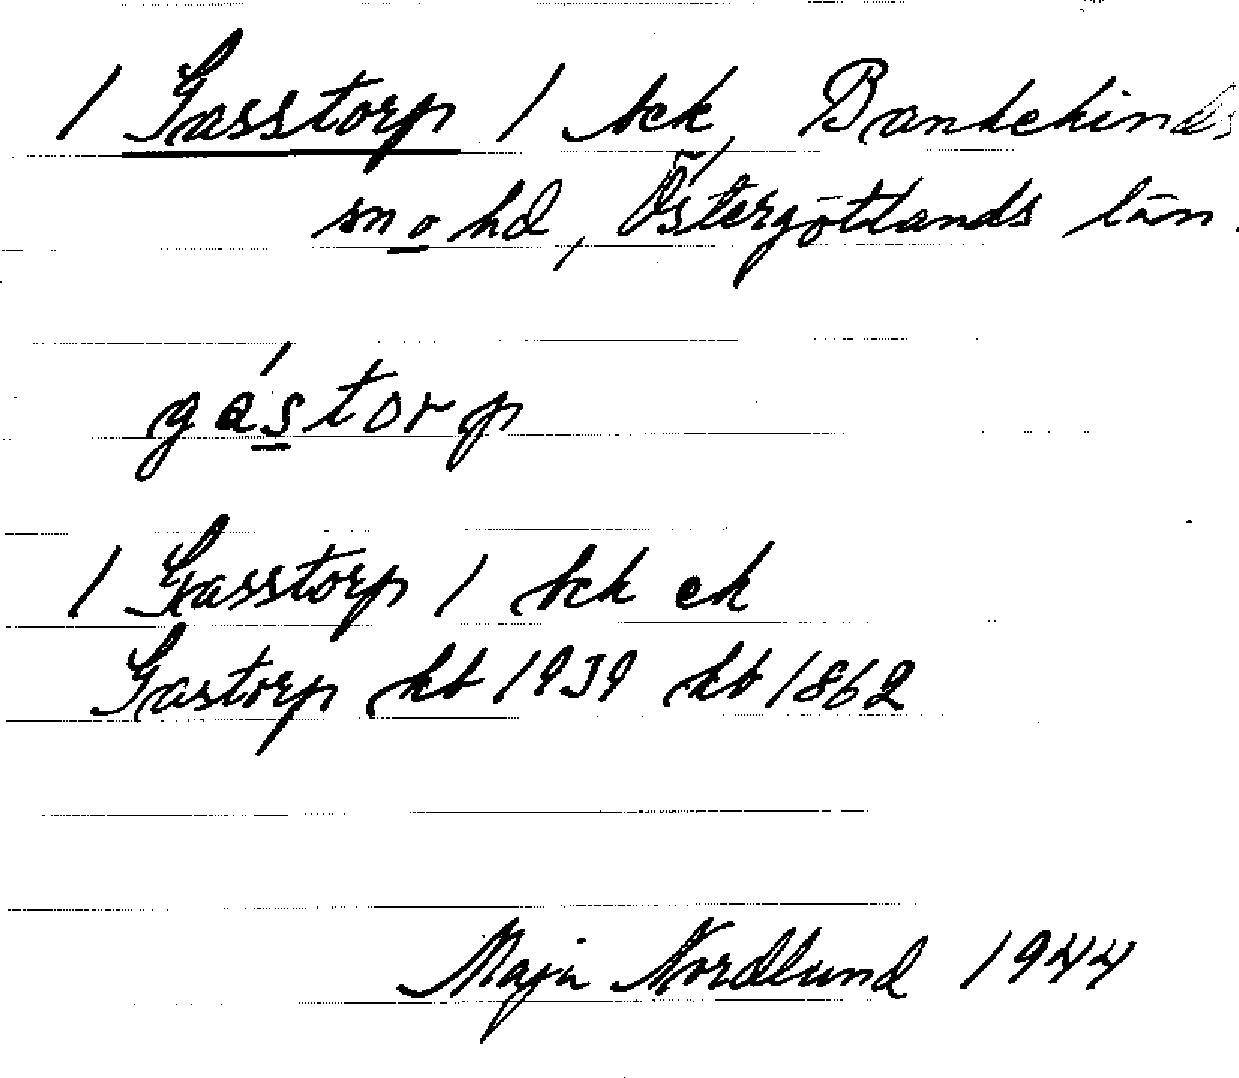 / Gasstorp / bck, Bankekinds
sn o hd, Östergötlands län.
gástorp
/ Gasstorp / bck ek
Gastorp kb 1939 kb 1862
Maja Nordlund 1944